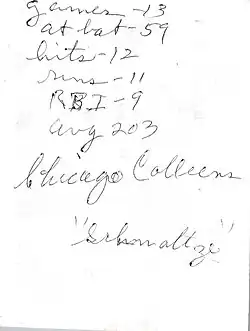 games - 13
at bat - 59
hits - 12
runs - 11
RBI - 9
avg 203
Chicago Colleens
"Schmaltzy"